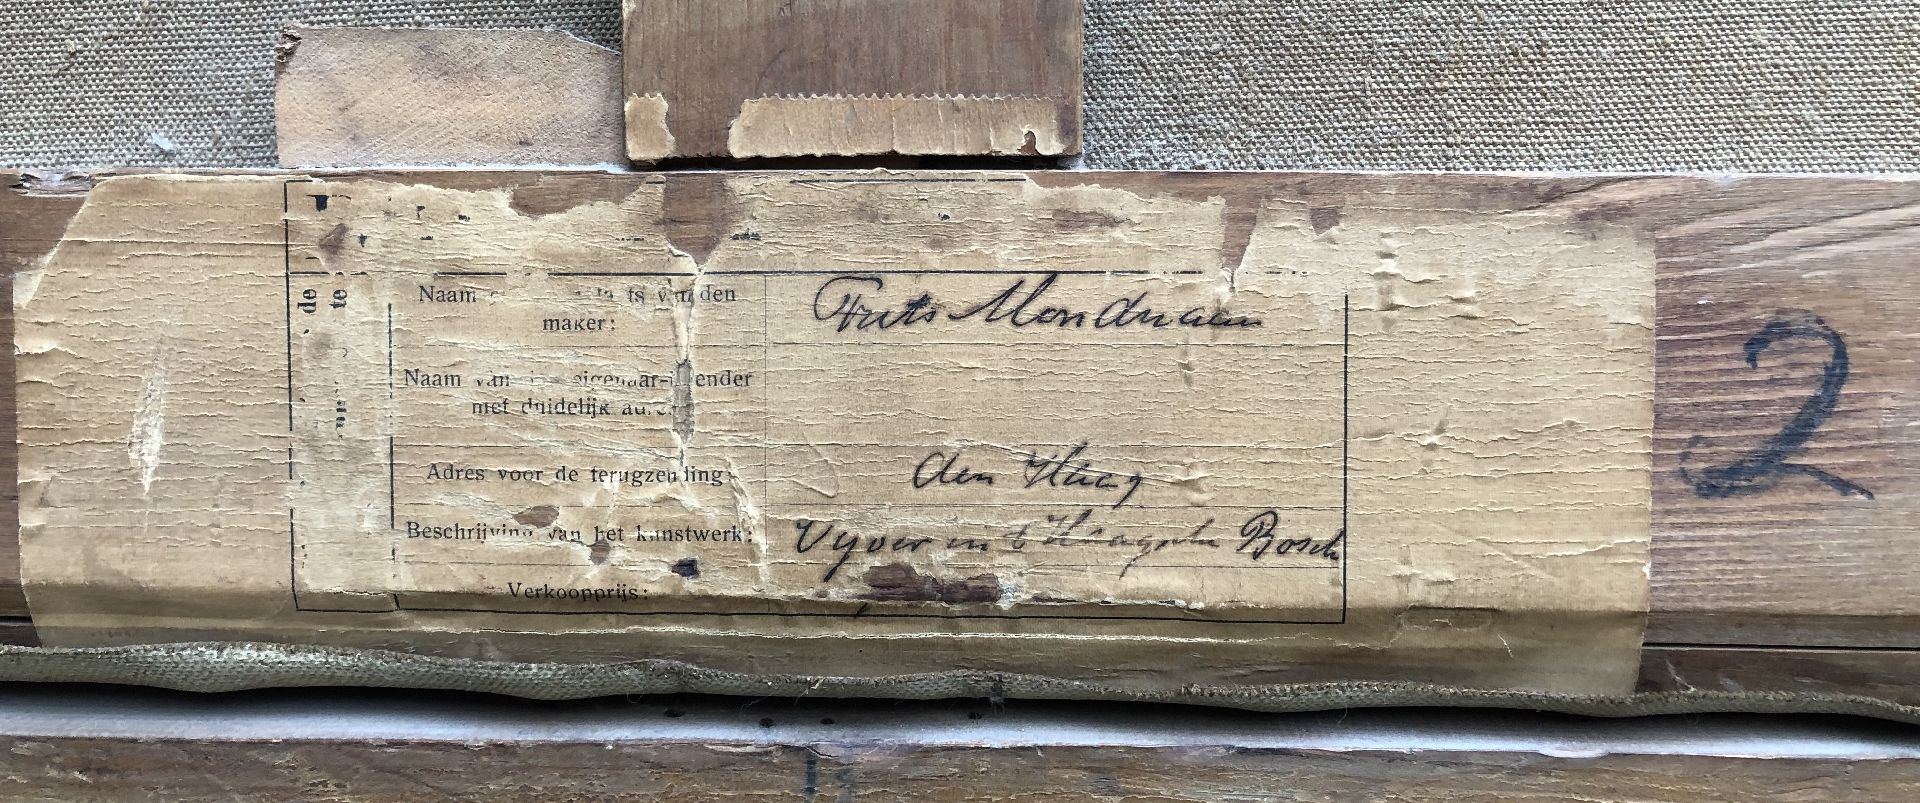 de
te
Naam van den
maker:
Frits Mondriaan
Naam van eigenaar-inzender
met duidelijk adres
Adres voor de terugzending:
den Haag
Beschrijving van het kunstwerk:
Vijver in 't Haagsche Bosch
Verkoopprijs:
2